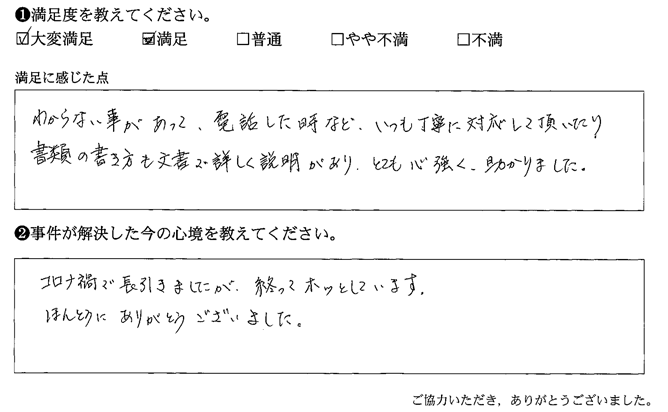 ❶満足度を教えてください。
☑大変満足 ☑満足 □普通 □やや不満 □不満
満足に感じた点
わからない事があって、電話した時など、いつも丁寧に対応して頂いたり
書類の書き方も文書で詳しく説明があり、とても心強く、助かりました。
❷事件が解決した今の心境を教えてください。
コロナ禍で長引きましたが、終ってホッとしています。
ほんとうにありがとうございました。
ご協力いただき，ありがとうございました。